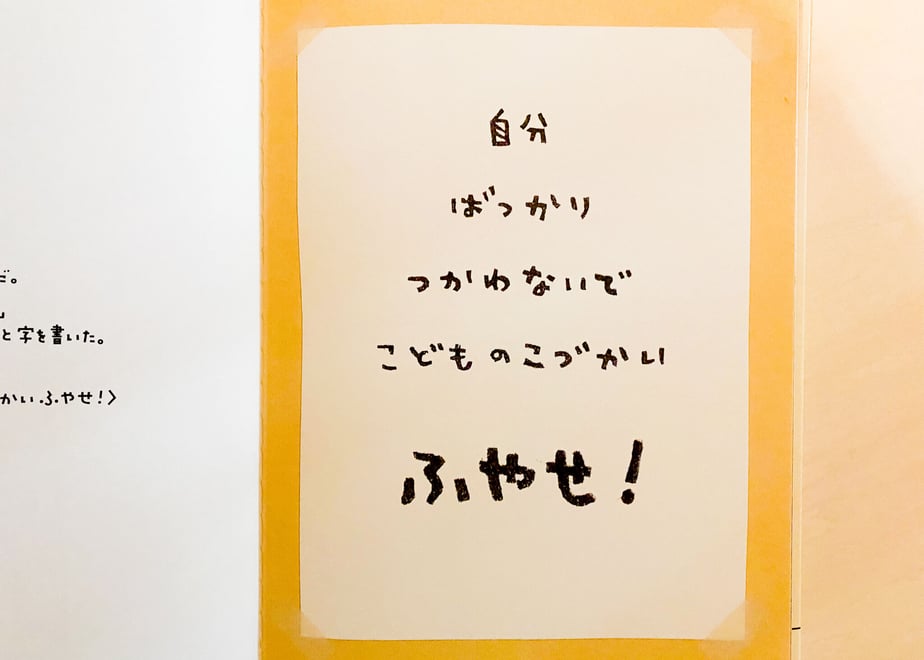 だ。
」
と字を書いた。
かいふやせ!〉
自分
ばっかり
つかわないで
こどものこづかい
ふやせ!